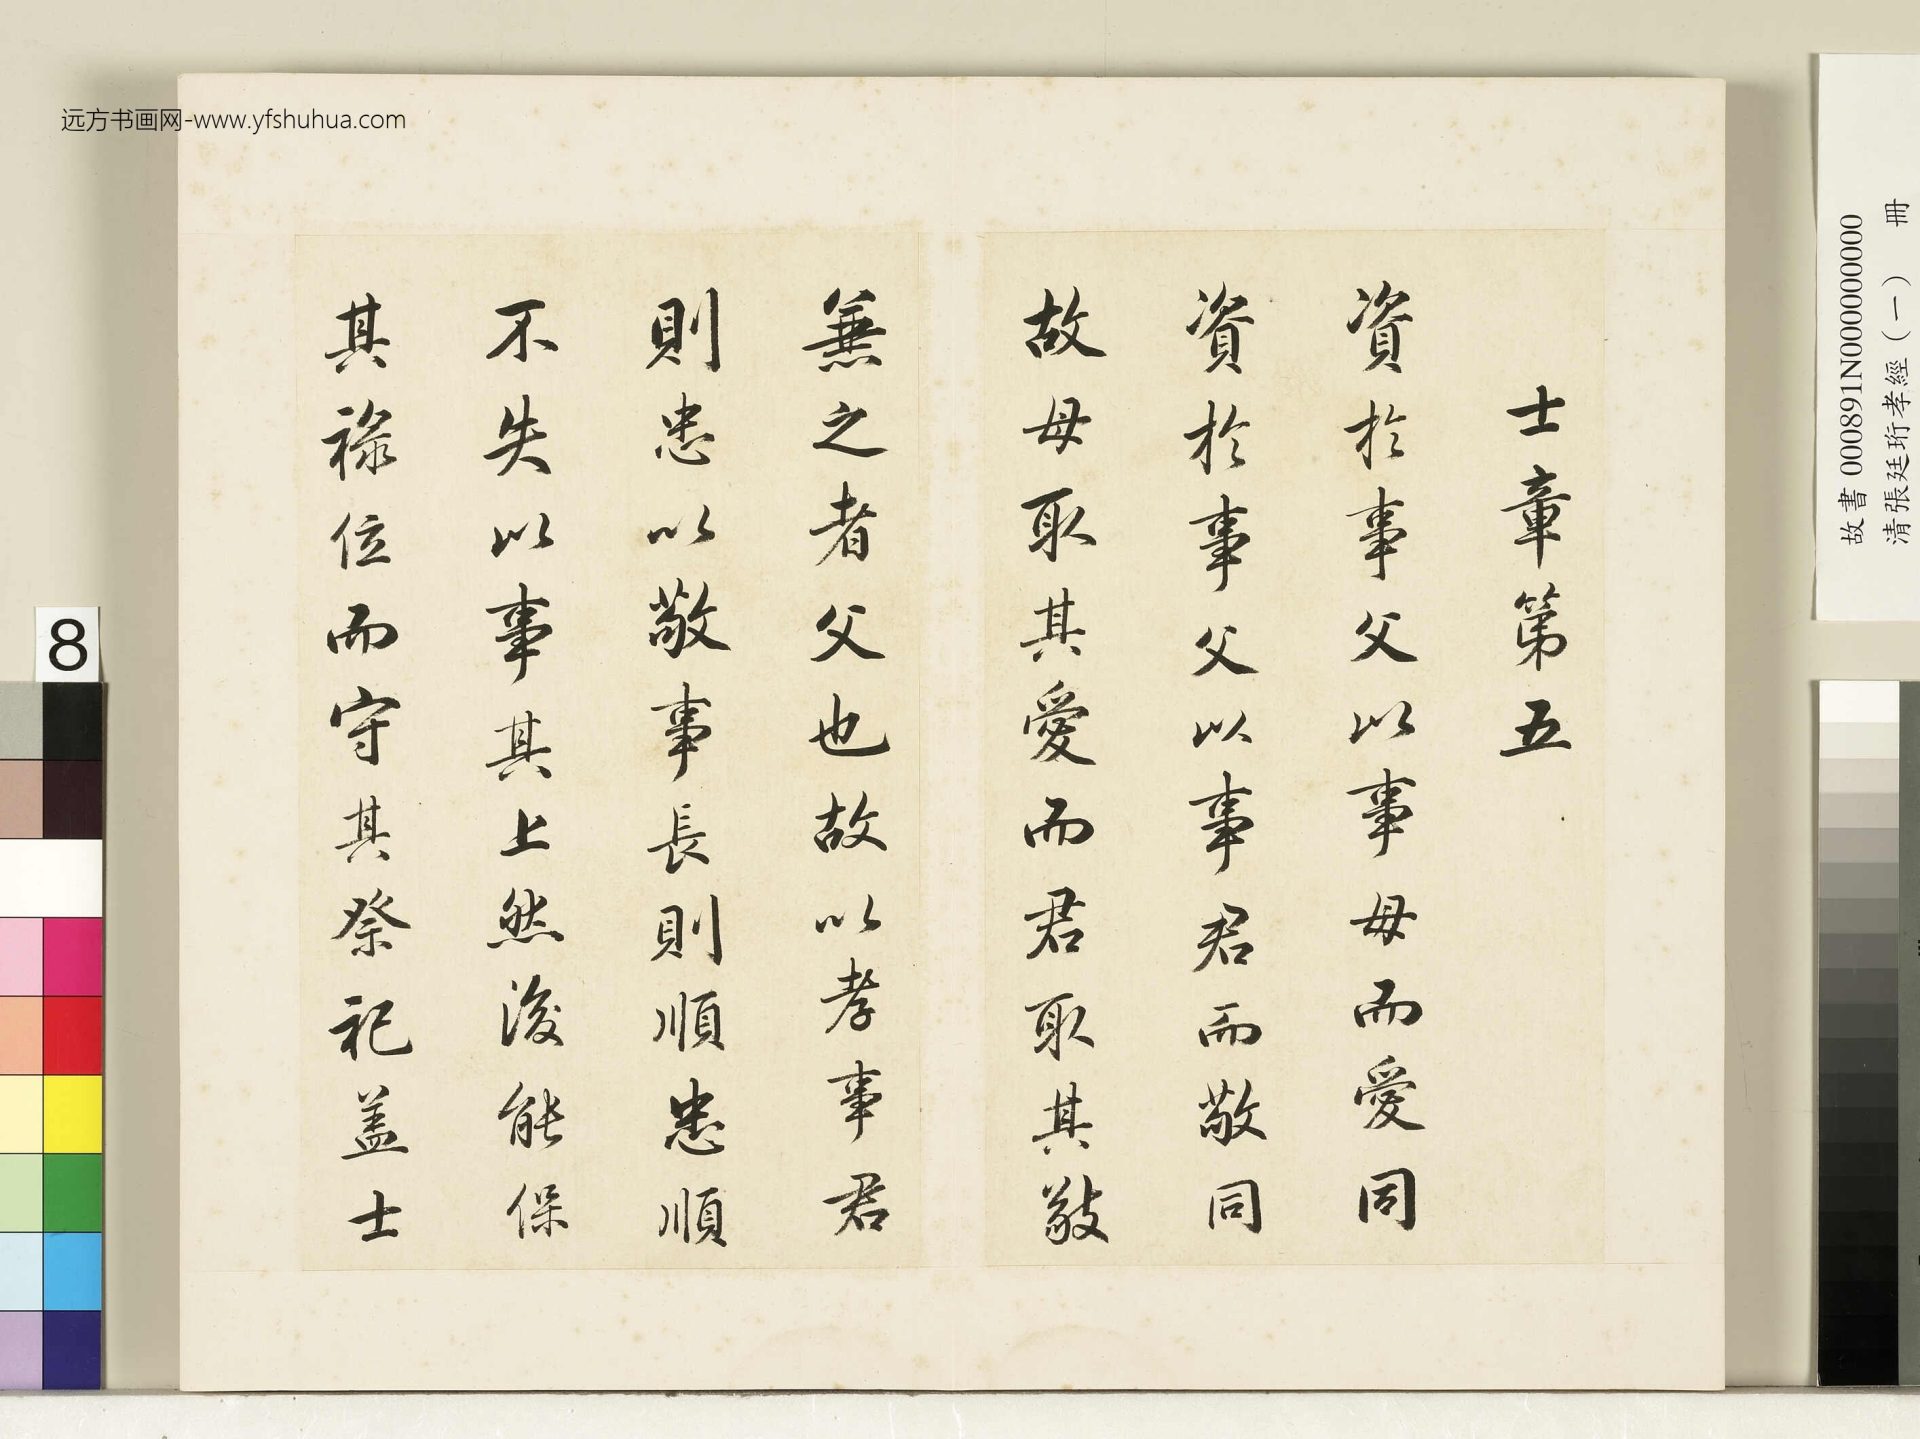 远方书画网-www.yfshuhua.com
士章第五
資於事父以事母而愛同
資於事父以事君而敬同
故母取其愛而君取其敬
兼之者父也故以孝事君
則忠以敬事長則順忠順
不失以事其上然後能保
其祿位而守其祭祀盖士
8
故書 000891N000000000
清張廷珩孝經(一) 冊